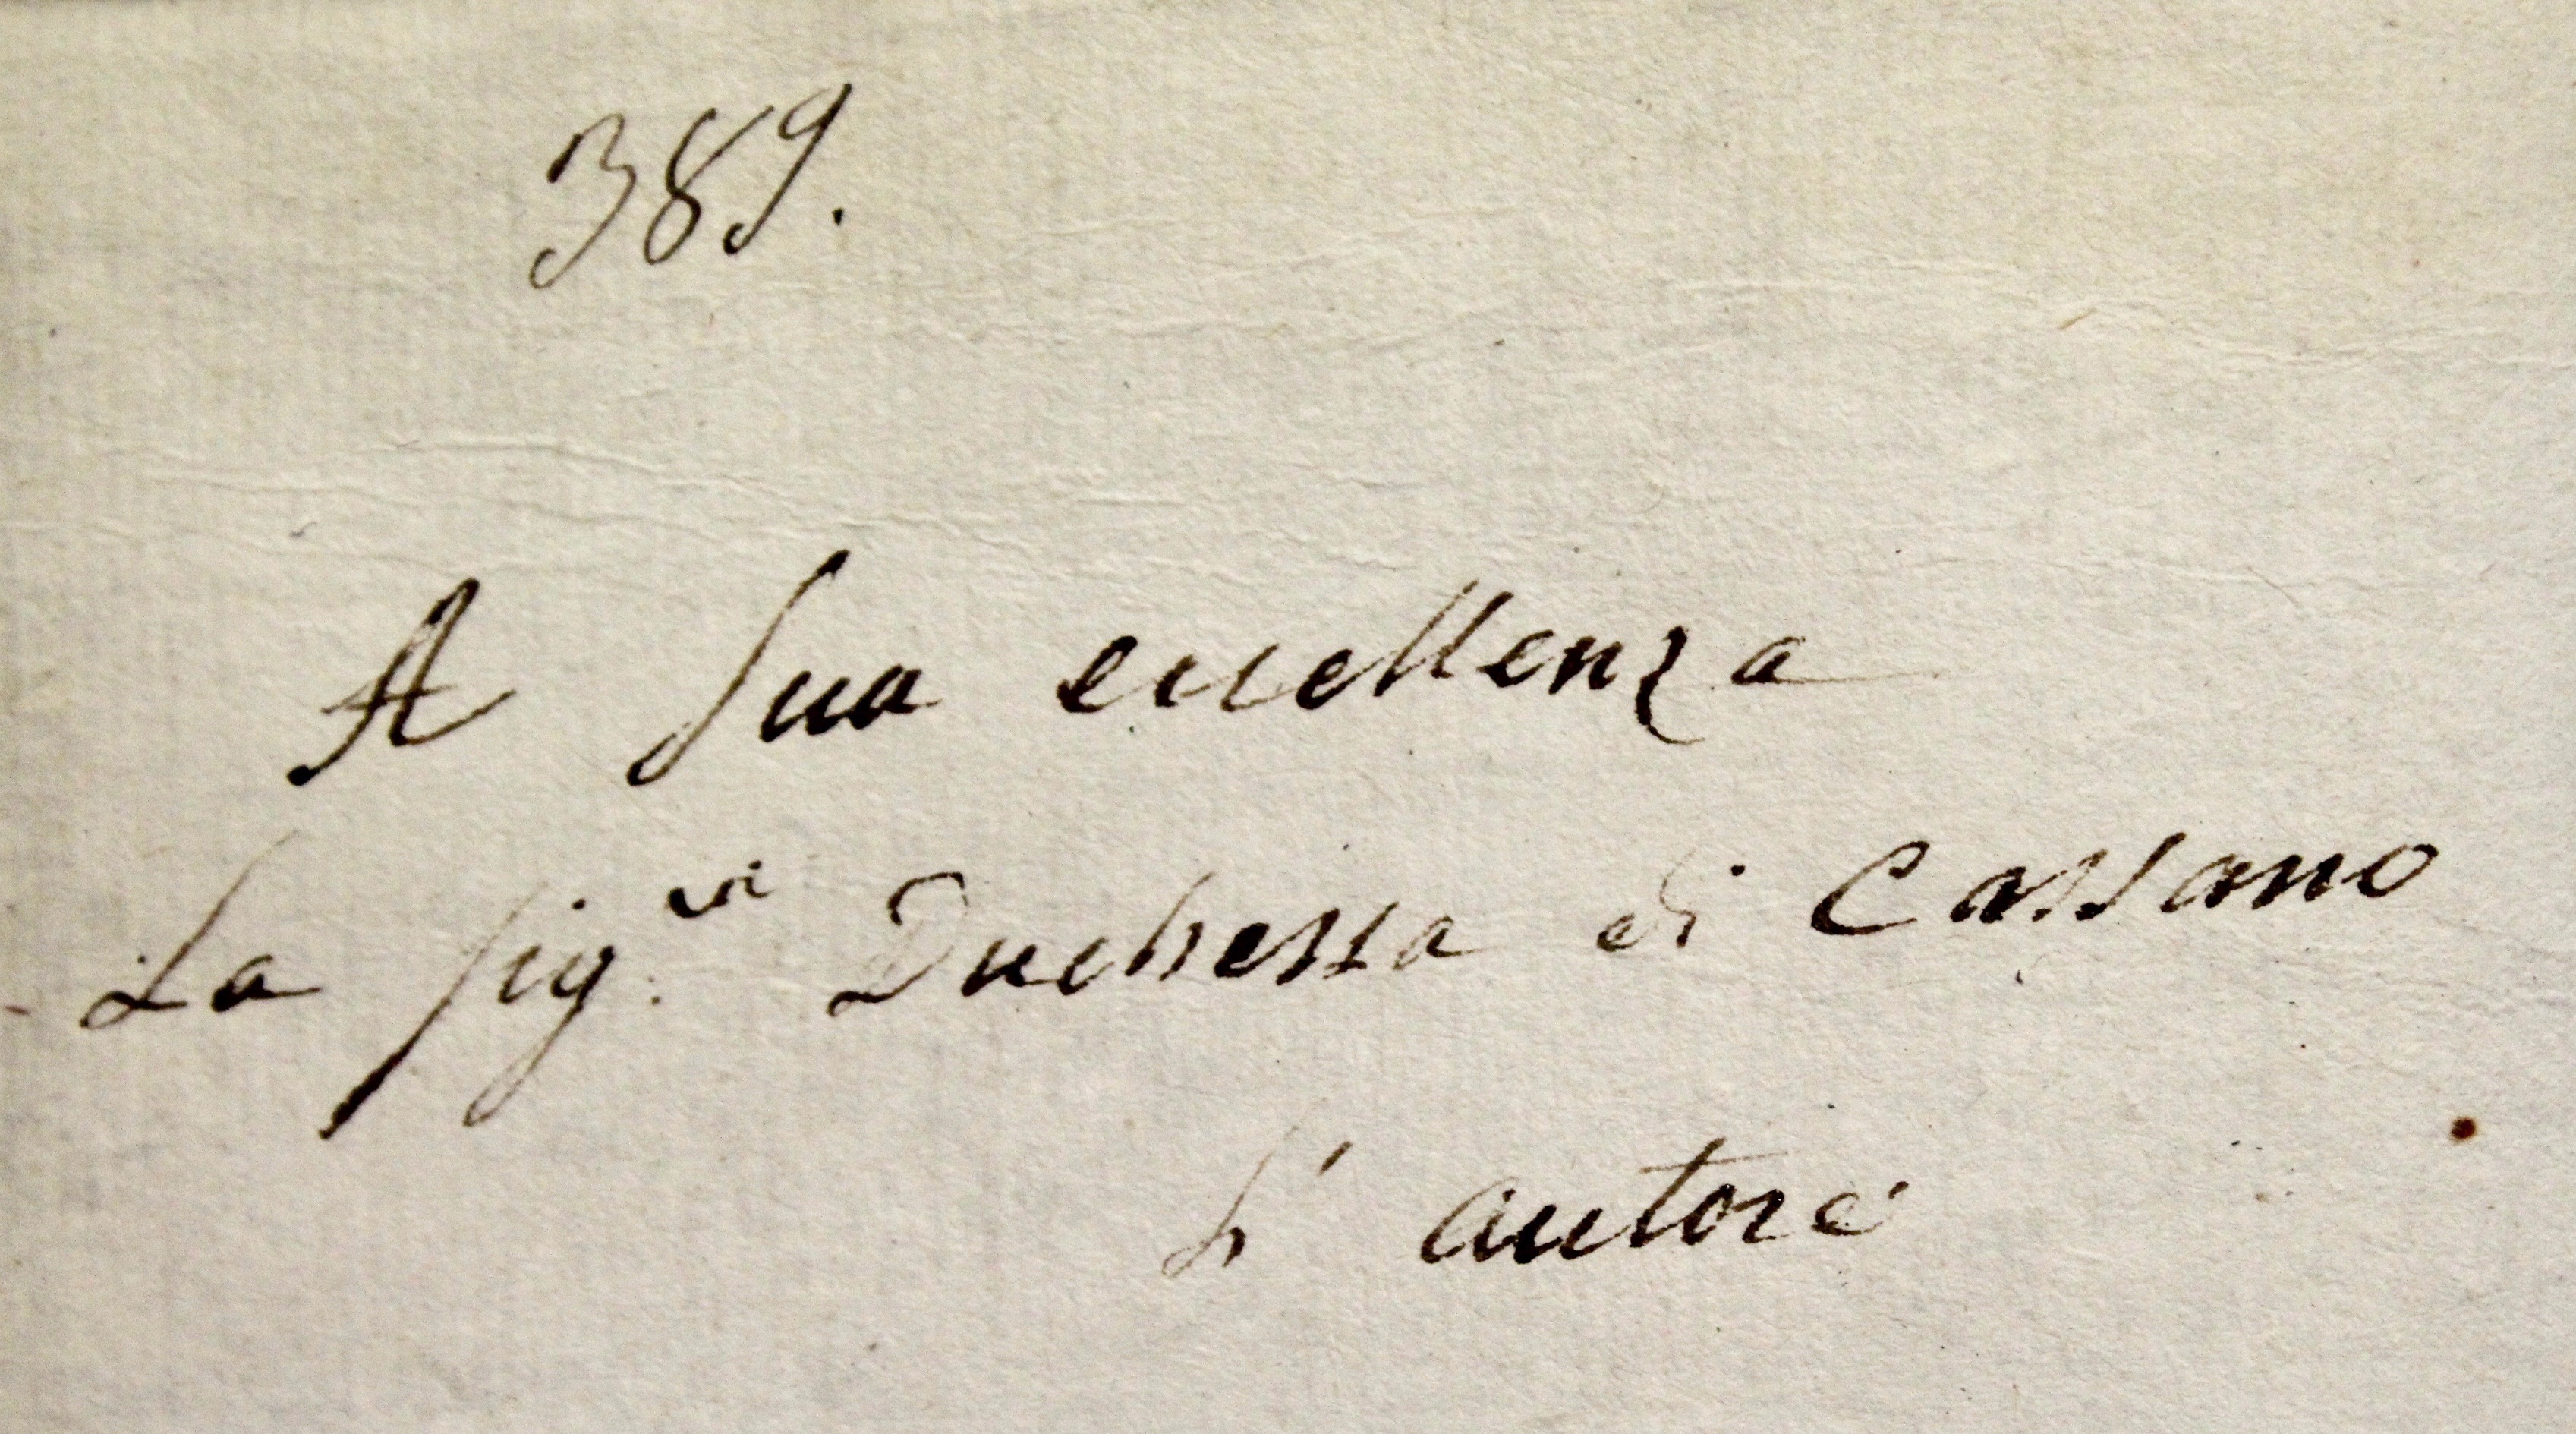 389.
A Sua eccellenza
La Sig.ra Duchessa di Cassano
L' autore